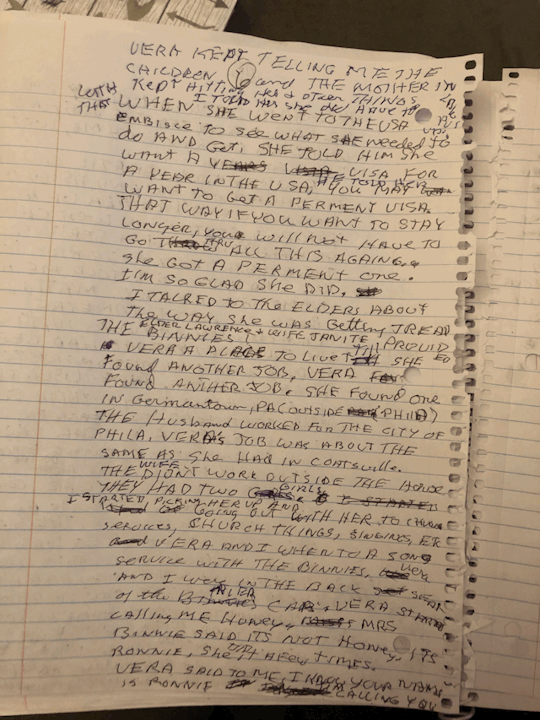 VERA KEPT TELLING ME THE
CHILDREN and THE MOTHER IN
KEPT HITTING HER & OTHER THINGS
WITH I TOLD HER she DID HAVE TO
THAT WHEN SHE WENT TO THE USA
EMBISCE TO SEE WHAT SHE NEEDED TO
do AND GET, SHE TOLD HIM She
WANT A VISA FOR
A YEAR IN THE USA, HE TOLD HER YOU MAY
WANT TO GET A PERMENT VISA.
THAT WAY IF YOU WANT TO STAY
LONGER, YOU will Not HAVE TO
GO THRU ALL THIS AGAIN
She GOT A PERMENT one.
I'M SO GLAD SHE DID.
I TALKED TO THE ELDERS ABOUT
The WAY She WAS GETTING TREAD
THE ELDER LAWRENCE & WIFE JANITE PROVID
BINNIES
VERA A PLACE TO LIVE TILL SHE
FOUND ANOTHER JOB, VERA
FOUND ANTHER JOB. SHE FOUND ONE
IN GERMANTOWN, PA (OUTSIDE PHILA)
THE HUSBAND WORKED FOR THE CITY OF
PHILA, VERA'S JOB WAS ABOUT THE
SAME AS She HAD IN COATSVILLE.
THE WIFE DIDNT WORK OUTSIDE THE HOUSE
THEY HAD TWO GIRLS
I STARTED PICKING HER UP AND
GOING OUT WITH HER TO CHURCH
services, CHURCH THINGS, SINGINGS, ETC
VERA AND I WHEN TO A SONG
SERVICE WITH THE BINNIES, VERA
AND I WERE IN THE BACK SEAT
of the CAR, VERA STARTED
CALLING ME HONEY, MRS
BINNIE SAID ITS NOT HONEY, ITS
RONNIE, SHE A FEW TIMES.
VERA SAID TO ME, I KNOW YOUR NAME
IS RONNIE CALLING YOU